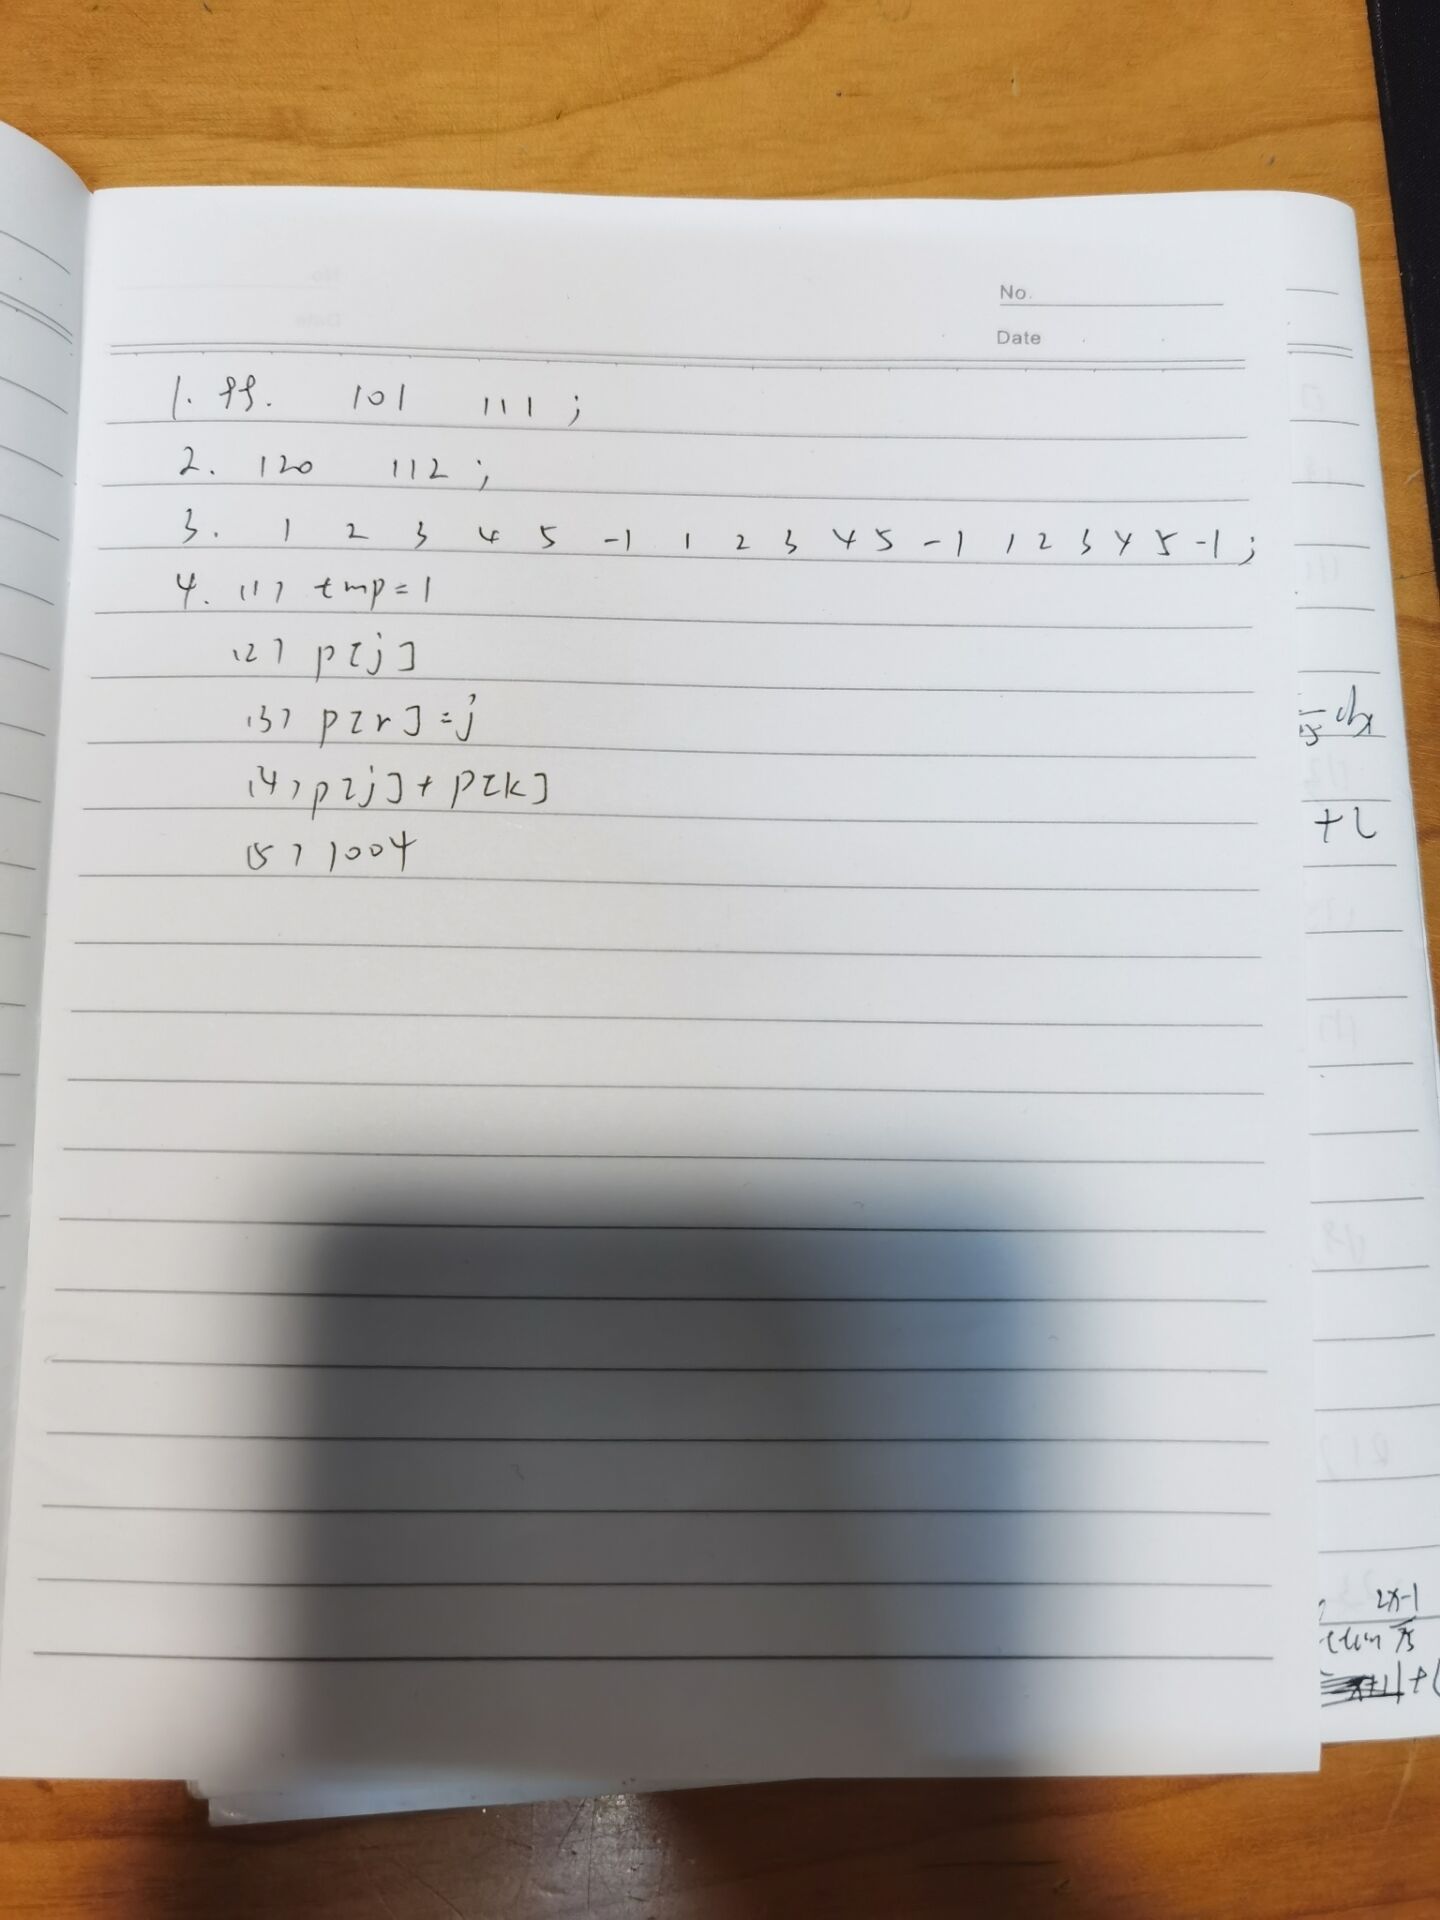 No.
Date
1. 99. 101 111 ;
2. 120 112 ;
3. 1 2 3 4 5 -1 1 2 3 4 5 -1 1 2 3 4 5 -1 ;
4. (1) tmp=1
(2) p[j]
(3) p[r]=j
(4) p[j]+p[k]
(5) 1004
+C
2x-1